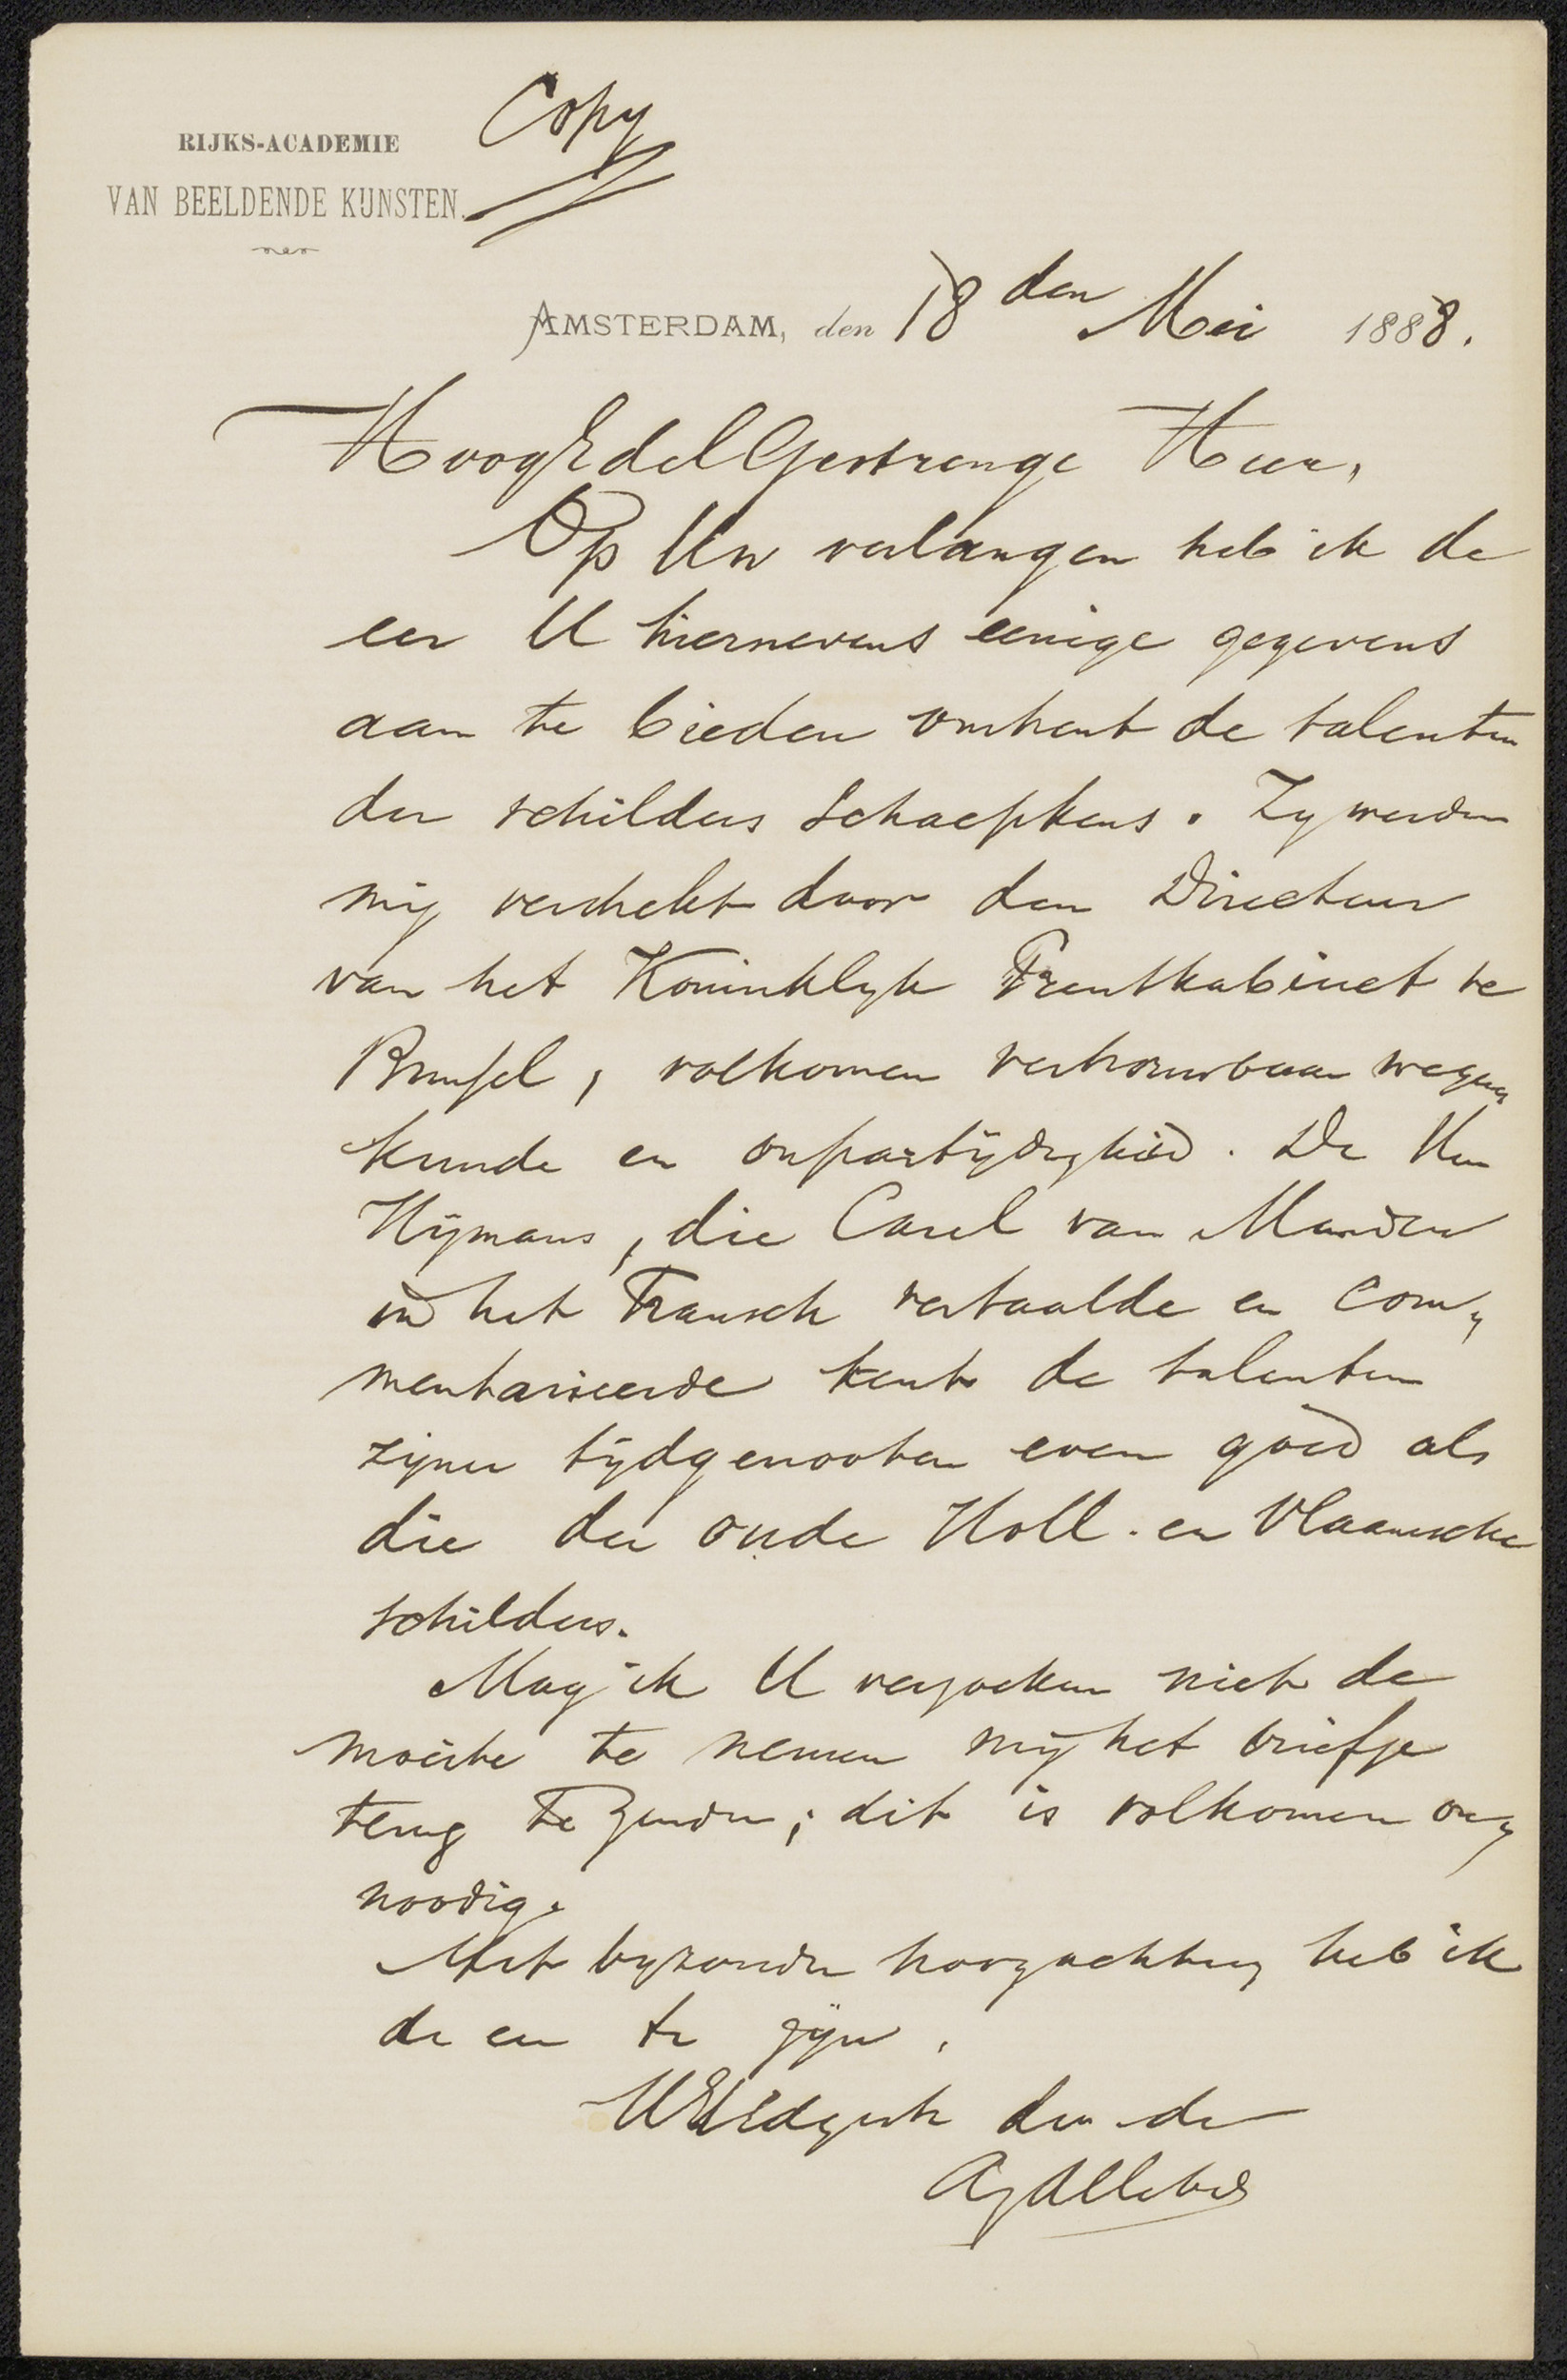 Copy
RIJKS-ACADEMIE
VAN BEELDENDE KUNSTEN.
AMSTERDAM, den 18 den Mei 1888.
HoogEdelGestrenge Heer,
Op Uw verlangen heb ik de
eer U hiernevens eenige gegevens
aan te bieden omtrent de talenten
der schilders Schaepkens. Zy werden
mij verstrekt door den Directeur
van het Koninklyk Prentkabinet te
Brussel, volkomen vertrouwbaar wegens
kunde en onpartijdigheid. De Heer
Hijmans, die Carel van Mander
in het Fransch vertaalde en com-
mentarieerde kent de talenten
zijner tijdgenooten even goed als
die der oude Holl. en Vlaamsche
schilders.
Mag ik U verzoeken niet de
moeite te nemen mij het briefje
terug te zenden; dit is volkomen on-
noodig.
Met byzonder hoogachting heb ik
de eer te zijn,
UwEdgestr dw. dr
AJ Allebé